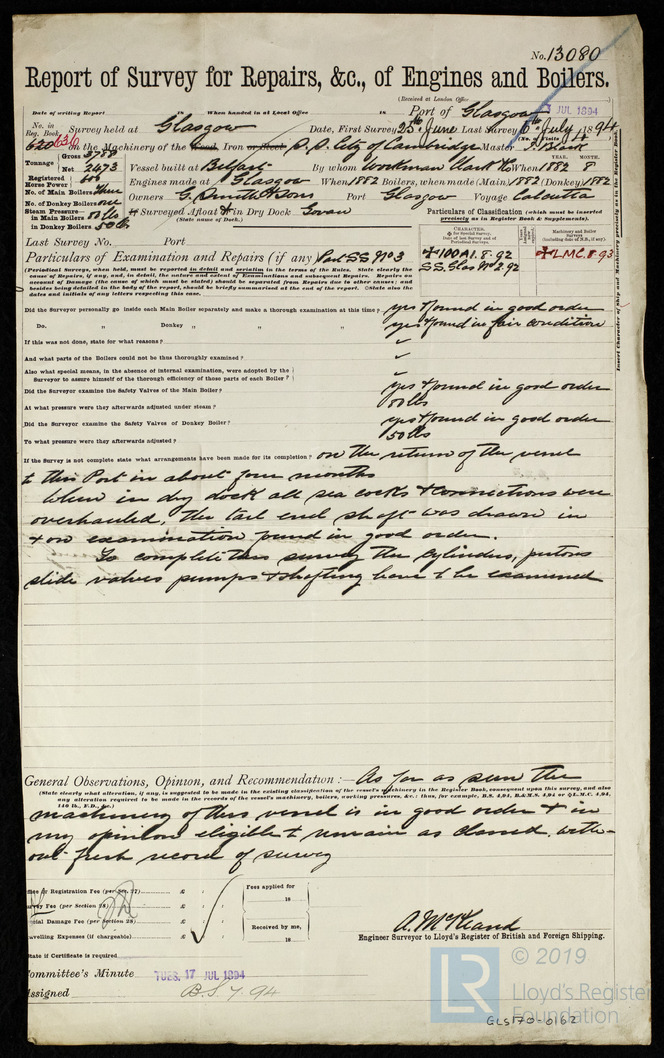 No. 13080
Report of Survey for Repairs, &c., of Engines and Boilers.
(Received at London Office
JUL 1894
Date of writing Report 18 When handed in at Local Office 18 Port of Glasgow
No. in Reg. Book Survey held at Glasgow Date, First Survey 25th June Last Survey 6th July 1894
on the Machinery of the Wood, Iron or Steel S.S. City of Cambridge Master J. Black
Tonnage Gross 3788
Net 2473
Vessel built at Belfast By whom Workman Clark & Co When 1882 YEAR. MONTH. 8
Registered Horse Power
Engines made at Glasgow When 1882 Boilers, when made (Main) 1882 (Donkey) 1882
No. of Main Boilers three
No. of Donkey Boilers one
Owners G. Smith & Sons Port Glasgow Voyage Calcutta
Steam Pressure in Main Boilers 80 lbs
in Donkey Boilers 50 lbs
If Surveyed Afloat or in Dry Dock Govan
(State name of Dock.)
Particulars of Classification (which must be inserted precisely as in Register Book & Supplements).
Last Survey No. Port
CHARACTER.
Machinery and Boiler Surveys
✠100A1. 8.92
S.S. Glas No 2. 92
✠L.M.C. 8.93
Insert Character of Ship and Machinery precisely as in the Register Book.
Particulars of Examination and Repairs (if any) Part SS No 3
(Periodical Surveys, when held, must be reported in detail and seriatim in the terms of the Rules. State clearly the
cause of Repairs, if any, and, in detail, the nature and extent of Examinations and subsequent Repairs. Repairs on
account of Damage (the cause of which must be stated) should be separated from Repairs due to other causes; and
besides being detailed in the body of the report, should be briefly summarised at the end of the report. State also the
dates and initials of any letters respecting this case.
Did the Surveyor personally go inside each Main Boiler separately and make a thorough examination at this time? yes & found in good order
Do. „ Donkey „ „ „ yes & found in fair condition
If this was not done, state for what reasons?
And what parts of the Boilers could not be thus thoroughly examined?
Also what special means, in the absence of internal examination, were adopted by the
Surveyor to assure himself of the thorough efficiency of those parts of each Boiler?
Did the Surveyor examine the Safety Valves of the Main Boiler? yes & found in good order
At what pressure were they afterwards adjusted under steam? 80 lbs
Did the Surveyor examine the Safety Valves of Donkey Boiler? yes & found in good order
To what pressure were they afterwards adjusted? 50 lbs
If the Survey is not complete state what arrangements have been made for its completion? on the return of the vessel
to this Port in about four months
When in dry dock all sea cocks & connections were
overhauled, the tail end shaft was drawn in
& on examination found in good order.
To complete this survey the cylinders, pistons
slide valves pumps & shafting have to be examined
General Observations, Opinion, and Recommendation:— As far as seen the
(State clearly what alteration, if any, is suggested to be made in the existing classification of the vessel's machinery in the Register Book, consequent upon this survey, and also
any alteration required to be made in the records of the vessel's machinery, boilers, working pressures, &c.: thus, for example, B.S. 4,94, B.&M.S. 4,94 or ✠L.M.C. 4,94,
140 lb., F.D., &c.)
machinery of this vessel is in good order & in
my opinion eligible to remain as classed with-
out fresh record of survey
Office or Registration Fee (per Sec. 27) £ : :
Survey Fee (per Section 28) £ : :
Special Damage Fee (per Section 28) £ : :
Travelling Expenses (if chargeable) £ : :
Fees applied for
18
Received by me,
18
Engineer Surveyor to Lloyd's Register of British and Foreign Shipping.
State if Certificate is required
Committee's Minute TUES. 17 JUL 1894
Assigned B.S. 7. 94
LR
© 2019
Lloyd's Register
Foundation
GLS170-0162